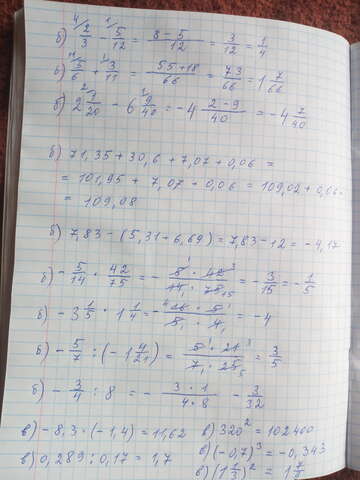 б) ⁴⁾2/3 - ¹⁾5/12 = (8 - 5)/12 = 3/12 = 1/4
б) ¹¹⁾5/6 + ⁶⁾3/11 = (55+18)/66 = 73/66 = 1 7/66
б) 2 ²⁾1/20 - 6 ¹⁾9/40 = -4 (2-9)/40 = -4 7/40
б) 71,35 + 30,6 + 7,07 + 0,06 =
= 101,95 + 7,07 + 0,06 = 109,02 + 0,06 =
= 109,08
б) 7,83 - (5,31 + 6,69) = 7,83 - 12 = -4,17
б) - 5/14 · 42/75 = - (5 · 42)/(14 · 75) = - 3/15 = - 1/5
б) -3 1/5 · 1 1/4 = - (16 · 5)/(5 · 4) = -4
б) - 5/7 : (-1 4/21) = (5 · 21)/(7 · 25) = 3/5
б) - 3/4 : 8 = - (3 · 1)/(4 · 8) - 3/32
в) -8,3 · (-1,4) = 11,62 в) 320² = 102400
в) 0,289 : 0,17 = 1,7 в) (-0,7)³ = -0,343
в) (1 1/3)² = 1 7/9